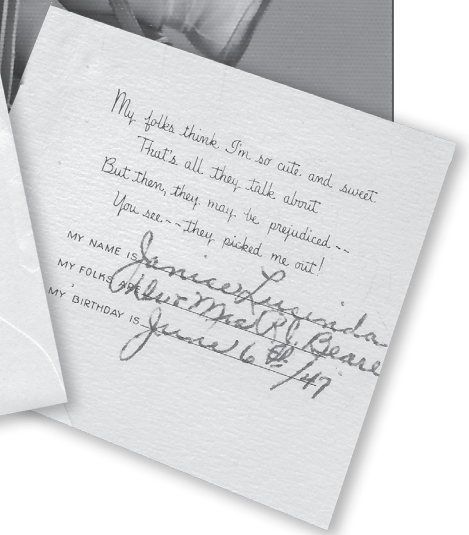 My folks think I'm so cute and sweet
That's all they talk about
But then, they may be prejudiced--
You see--they picked me out!
MY NAME IS Janice Lucinda
MY FOLKS ARE Mr & Mrs R. Beare
MY BIRTHDAY IS June 6th/47